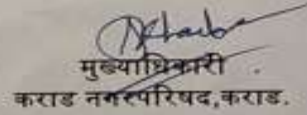 मुख्याधिकारी .
कराड नगरपरिषद,कराड.